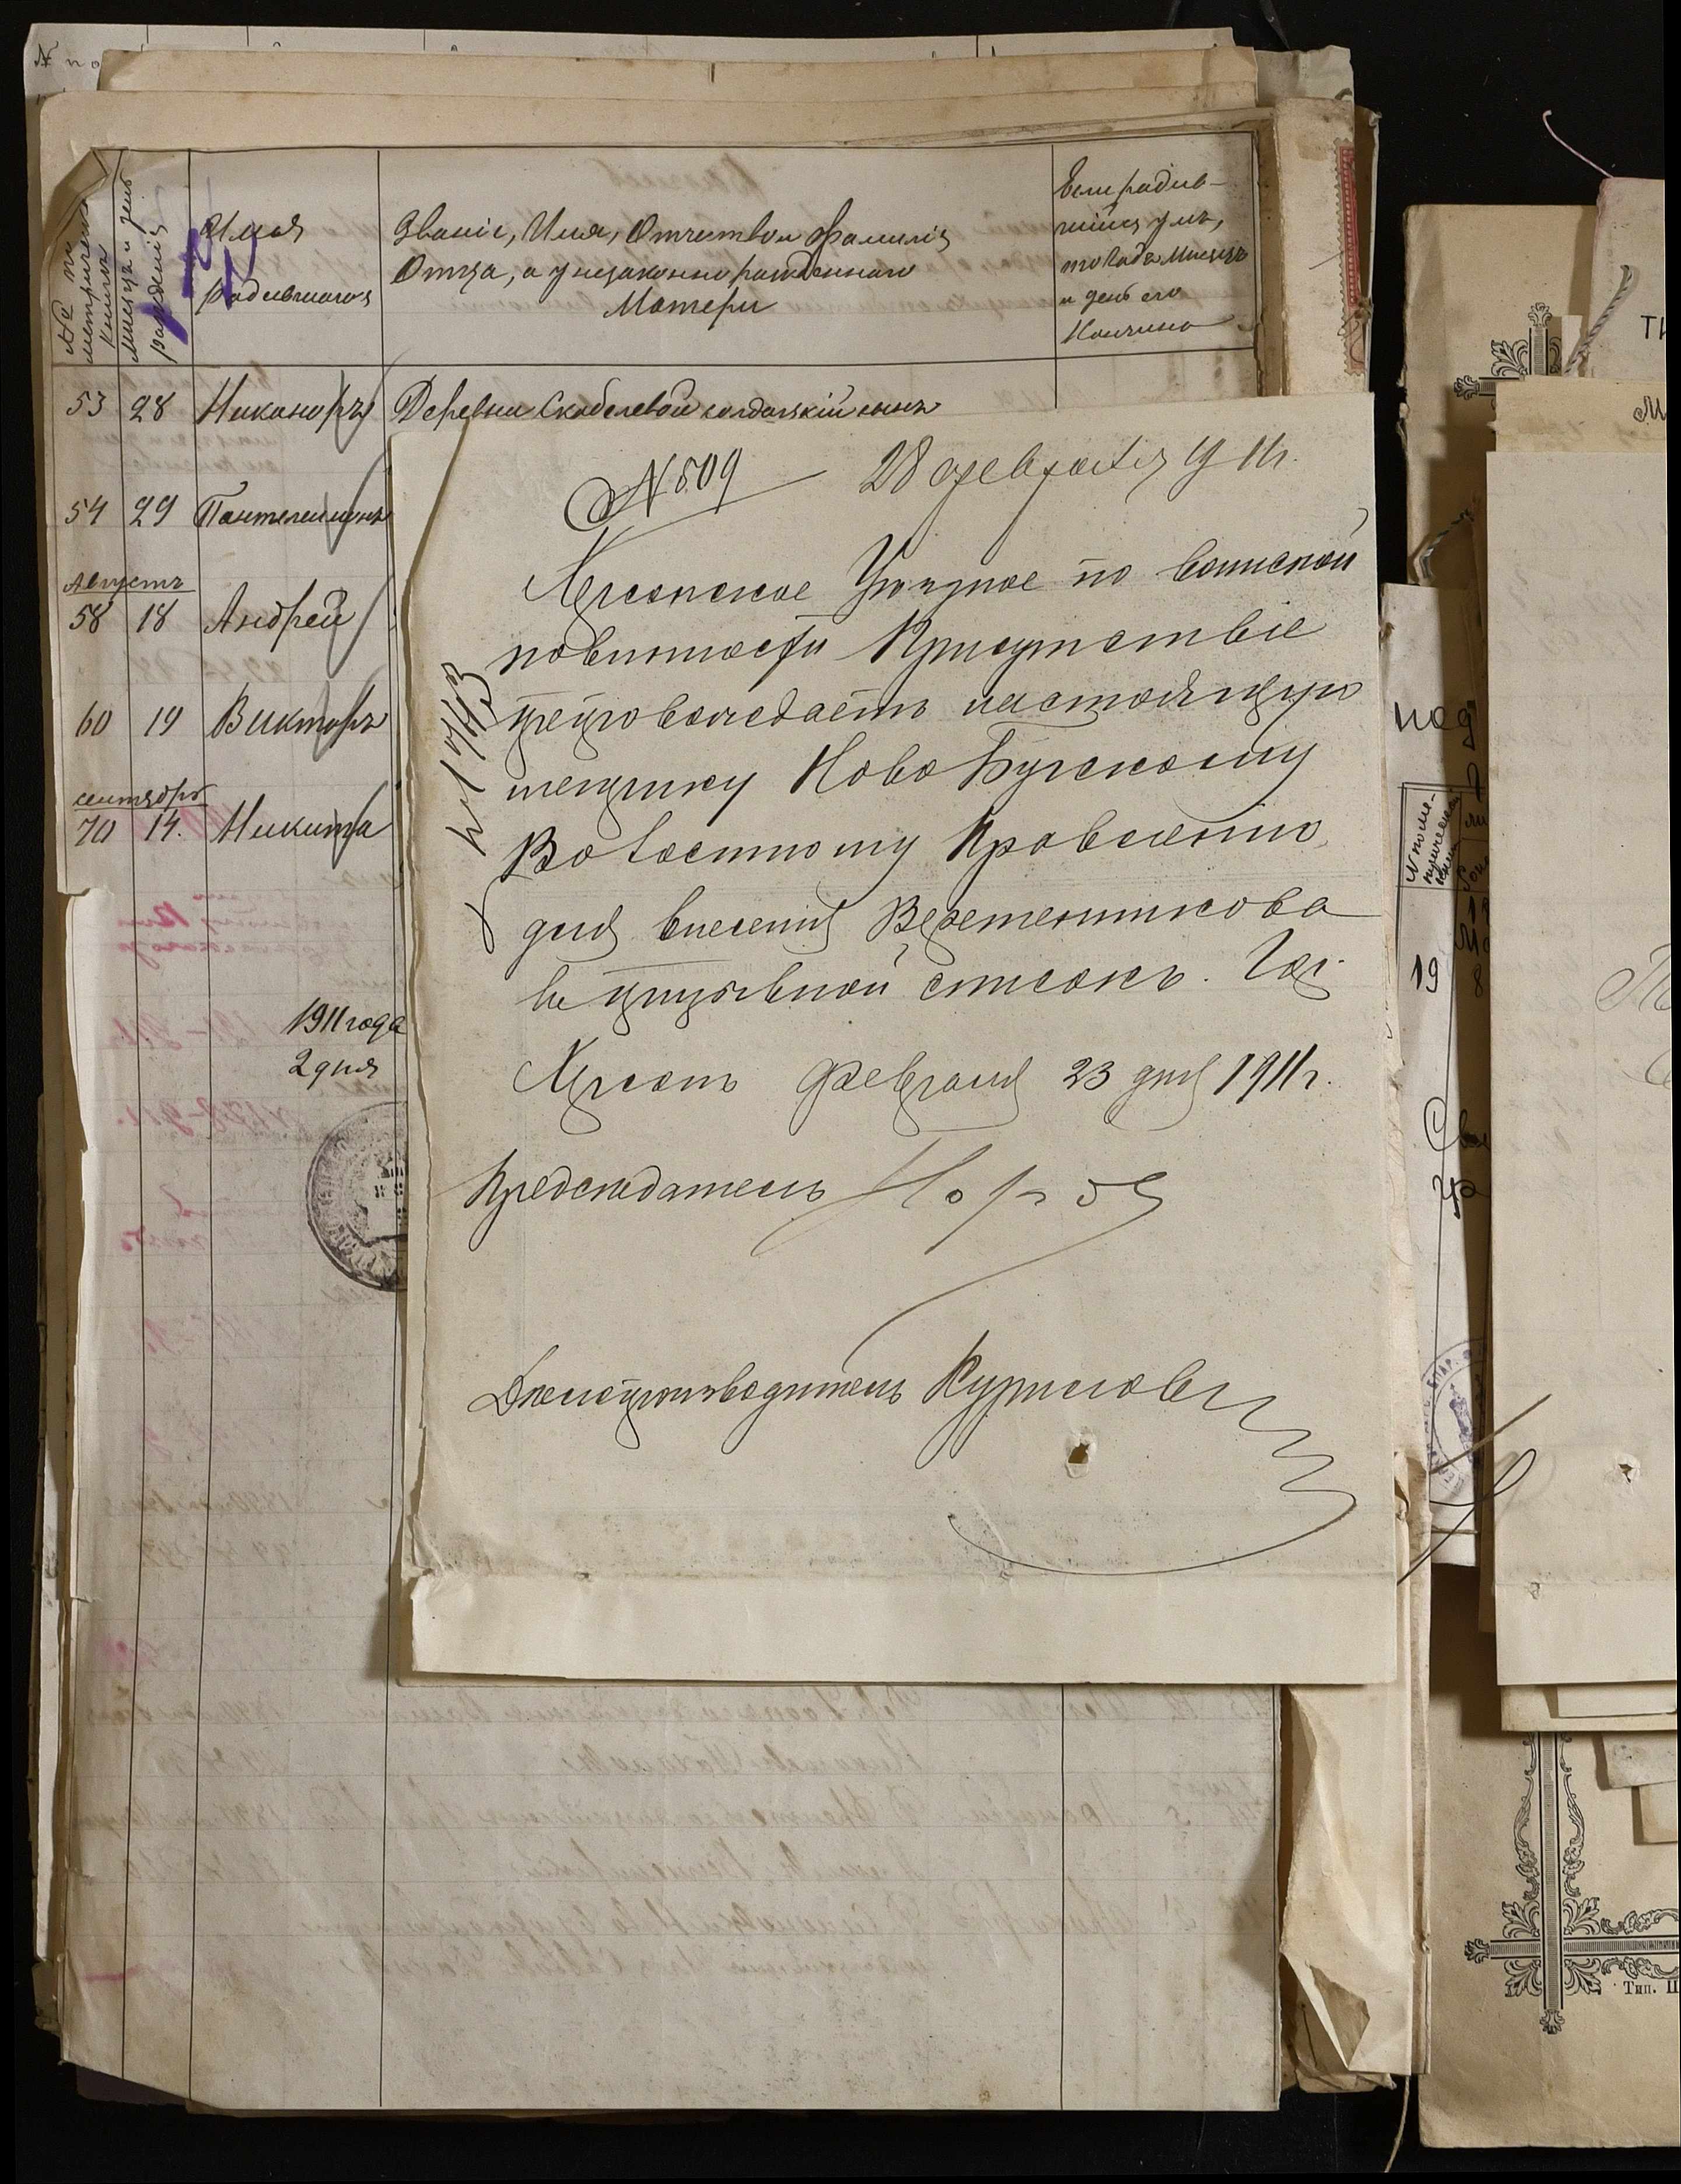 № по
№ по метрической книги
Месяцъ и день рожденія
Имя
родившагося
Званіе, Имя, Отчество и фамилія
Отца, а у незаконно рожденнаго
Матери
Если родив-
шійся умъ,
то Годъ Месяцъ
и день его
Кончины
53 28 Никаноръ Деревни Скобелевой солдатскій сынъ
54 29 Пантелеимонъ
Августъ
58 18 Андрей
60 19 Викторъ
сентябрь
70 14. Никита
1911 года
2 дня
№ 509 28 февраля 1911г.
Херсонское Уѣздное по воинской
повинности Присутствіе
препровождаетъ настоящую
переписку Ново Бугскому
Волостному Правленію,
для внесенія Веретенникова
въ призывной списокъ. Гор.
Херсонъ Февраля 23 дня 1911г.
Предсѣдатель
Дѣлопроизводитель Курилов
19
8
Тип.